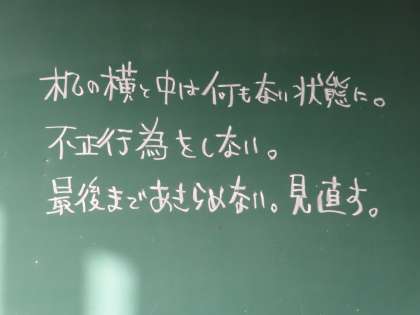 机の横と中は何もない状態に。
不正行為をしない。
最後まであきらめない。見直す。